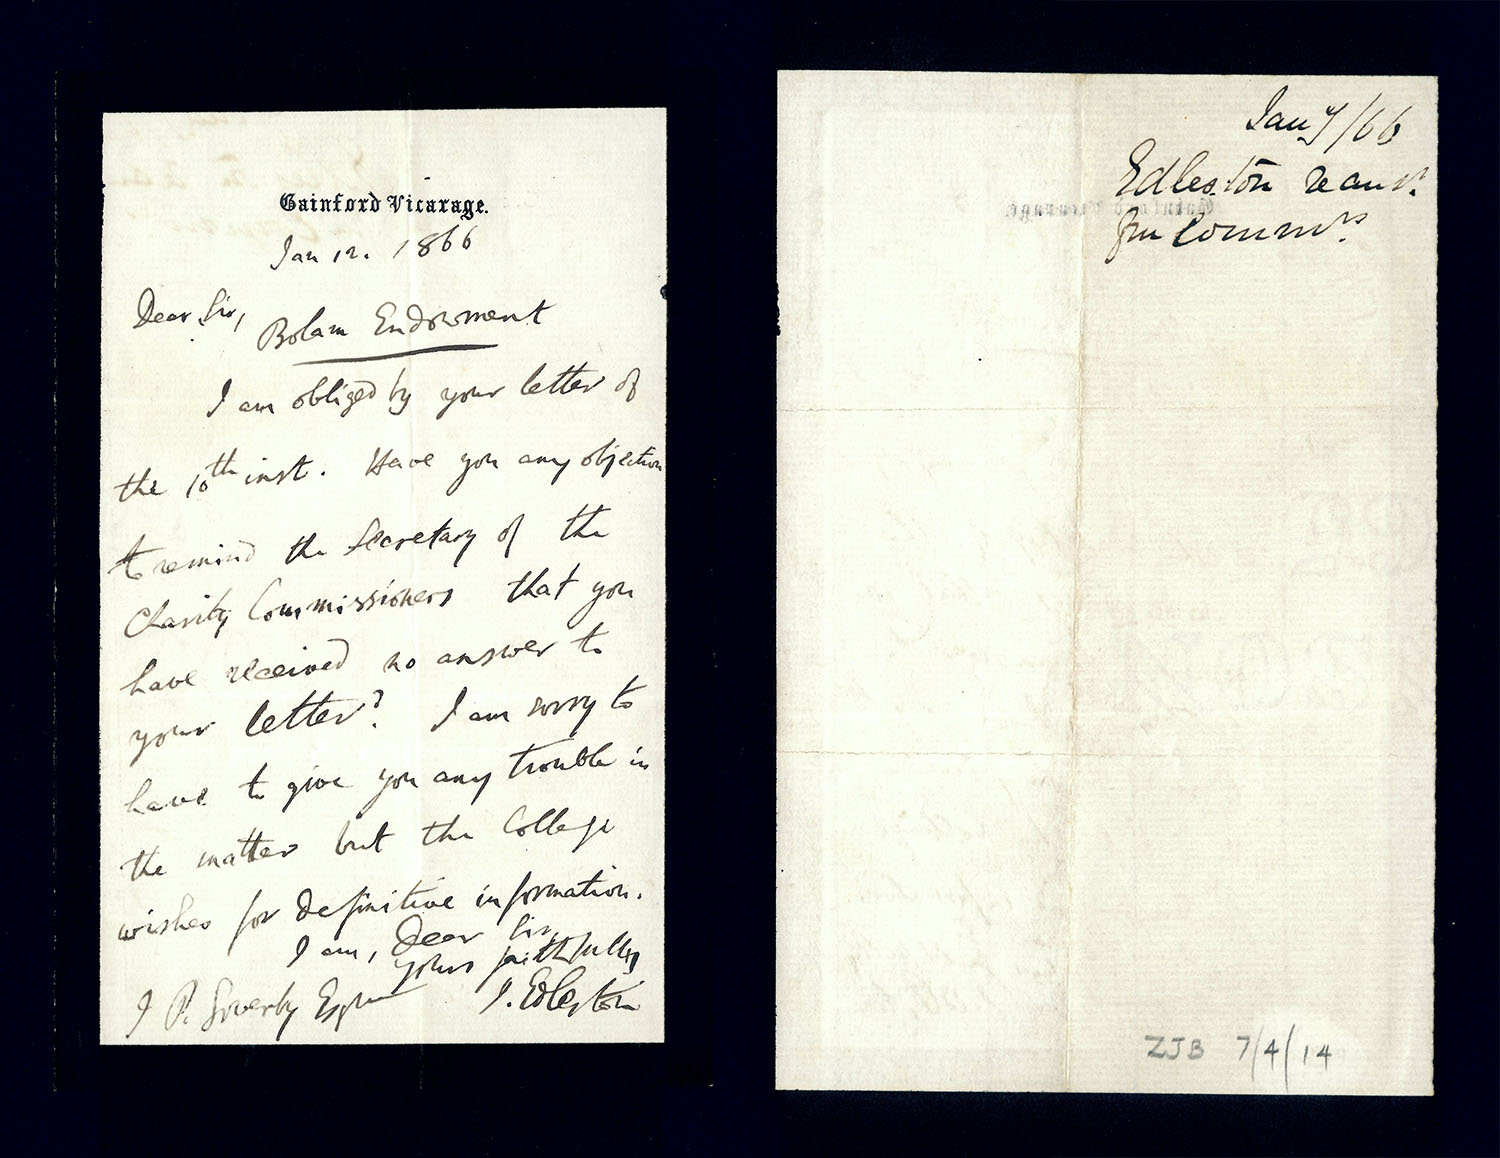 Gainford Vicarage.
Jan 12. 1866
Dear Sir,
Bolam Endowment
I am obliged by your letter of
the 10th inst. Have you any objection
to remind the Secretary of the
Charity Commissioners that you
have received no answer to
your letter? I am sorry to
have to give you any trouble in
the matter but the College
wishes for definitive information.
I am, Dear Sir,
yours faithfully
J. Edleston
J P. Sowerby Esqr
Jany/66
Edleston
Commrs
ZJB 7/4/14